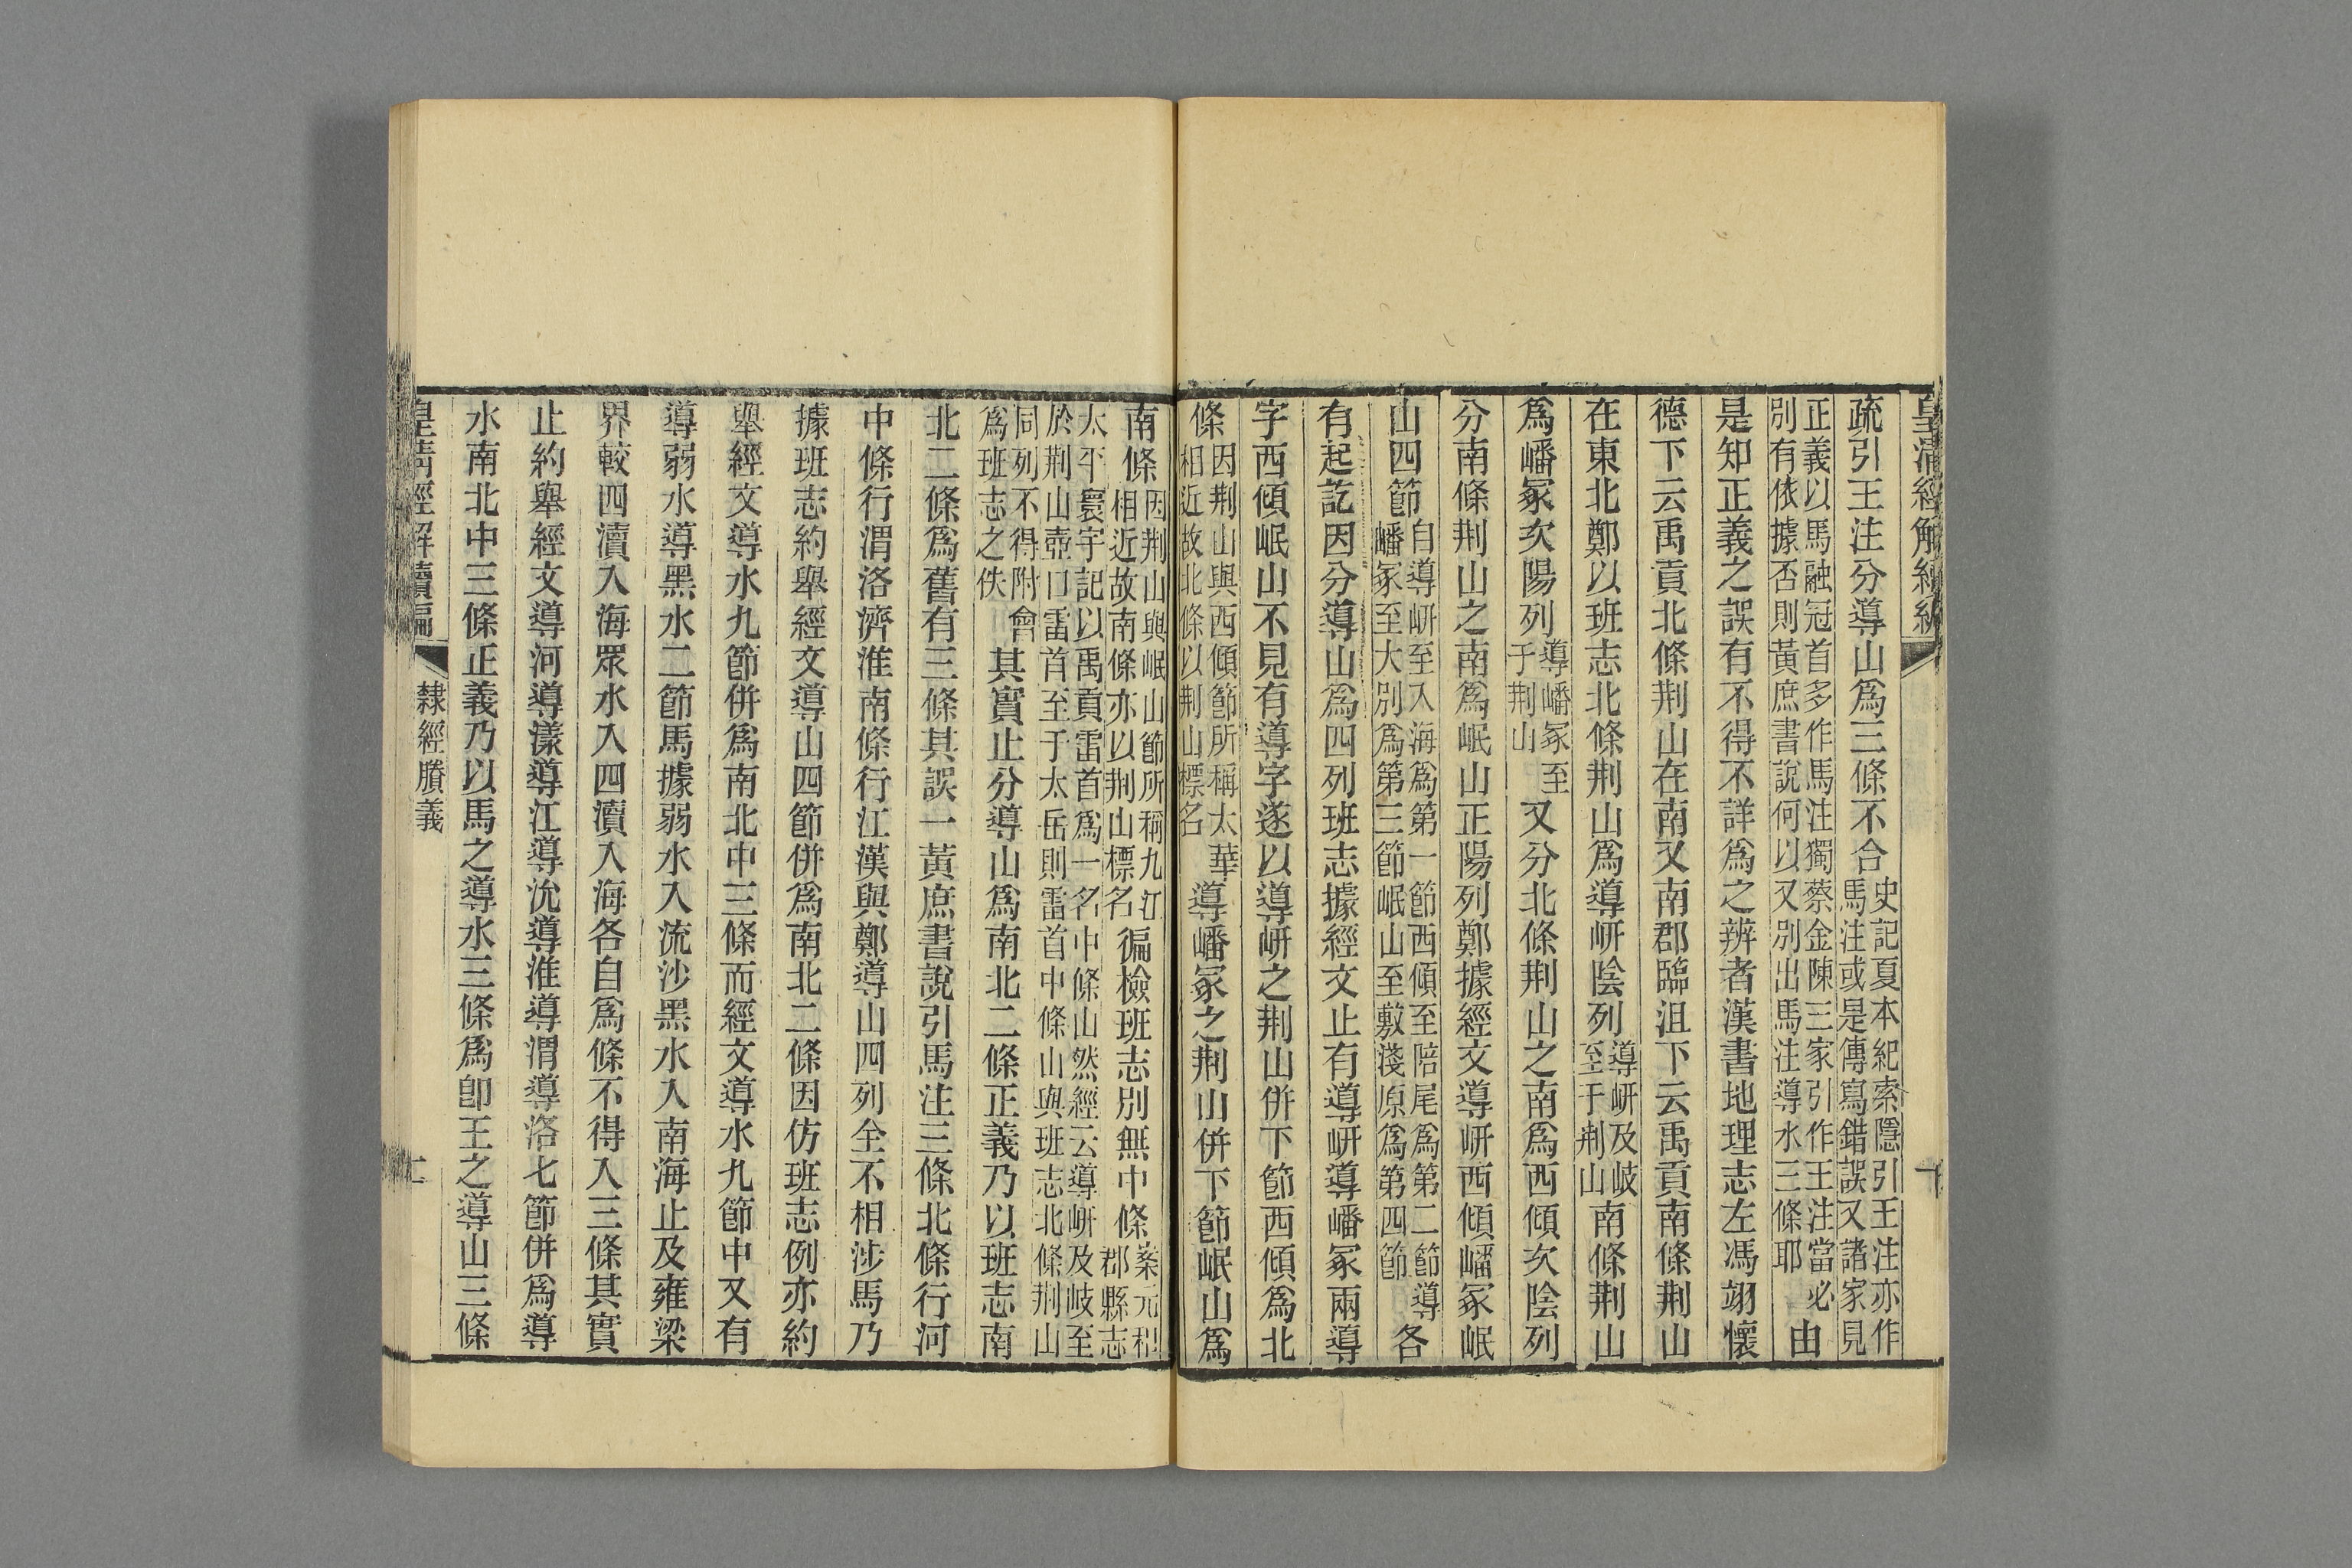 疏引王注分導山爲三條不合史記夏本紀索隱引王注亦作馬注或是傳寫錯誤又諸家見
正義以馬融冠首多作馬注獨蔡金陳三家引作王注當必別有依據否則黃庶書說何以又別出馬注導水三條耶由
是知正義之誤有不得不詳爲之辨者漢書地理志左馮翊懷
德下云禹貢北條荆山在南又南郡臨沮下云禹貢南條荆山
在東北鄭以班志北條荆山爲導岍陰列導岍及岐至于荆山南條荆山
爲嶓冢次陽列導嶓冢至于荆山又分北條荆山之南爲西傾次陰列
分南條荆山之南爲岷山正陽列鄭據經文導岍西傾嶓冢岷
山四節自導岍至入海爲第一節西傾至陪尾爲第二節導嶓冢至大別爲第三節岷山至敷淺原爲第四節各
有起訖因分導山爲四列班志據經文止有導岍導嶓冢兩導
字西傾岷山不見有導字遂以導岍之荆山併下節西傾爲北
條因荆山與西傾節所稱太華相近故北條以荆山標名導嶓冢之荆山併下節岷山爲
南條因荆山與岷山節所稱九江相近故南條亦以荆山標名徧檢班志別無中條案元和郡縣志
太平寰宇記以禹貢雷首爲一名中條山然經云導岍及岐至於荆山壺口雷首至于太岳則雷首中條山與班志北條荆山
同列不得附會爲班志之佚其實止分導山爲南北二條正義乃以班志南
北二條爲舊有三條其誤一黃庶書說引馬注三條北條行河
中條行渭洛濟淮南條行江漢與鄭導山四列全不相涉馬乃
據班志約舉經文導山四節併爲南北二條因仿班志例亦約
舉經文導水九節併爲南北中三條而經文導水九節中又有
導弱水導黑水二節馬據弱水入流沙黑水入南海止及雍梁
界較四瀆入海眾水入四瀆入海各自爲條不得入三條其實
止約舉經文導河導漾導江導沇導淮導渭導洛七節併爲導
水南北中三條正義乃以馬之導水三條爲卽王之導山三條
皇清經解續編 隸經賸義